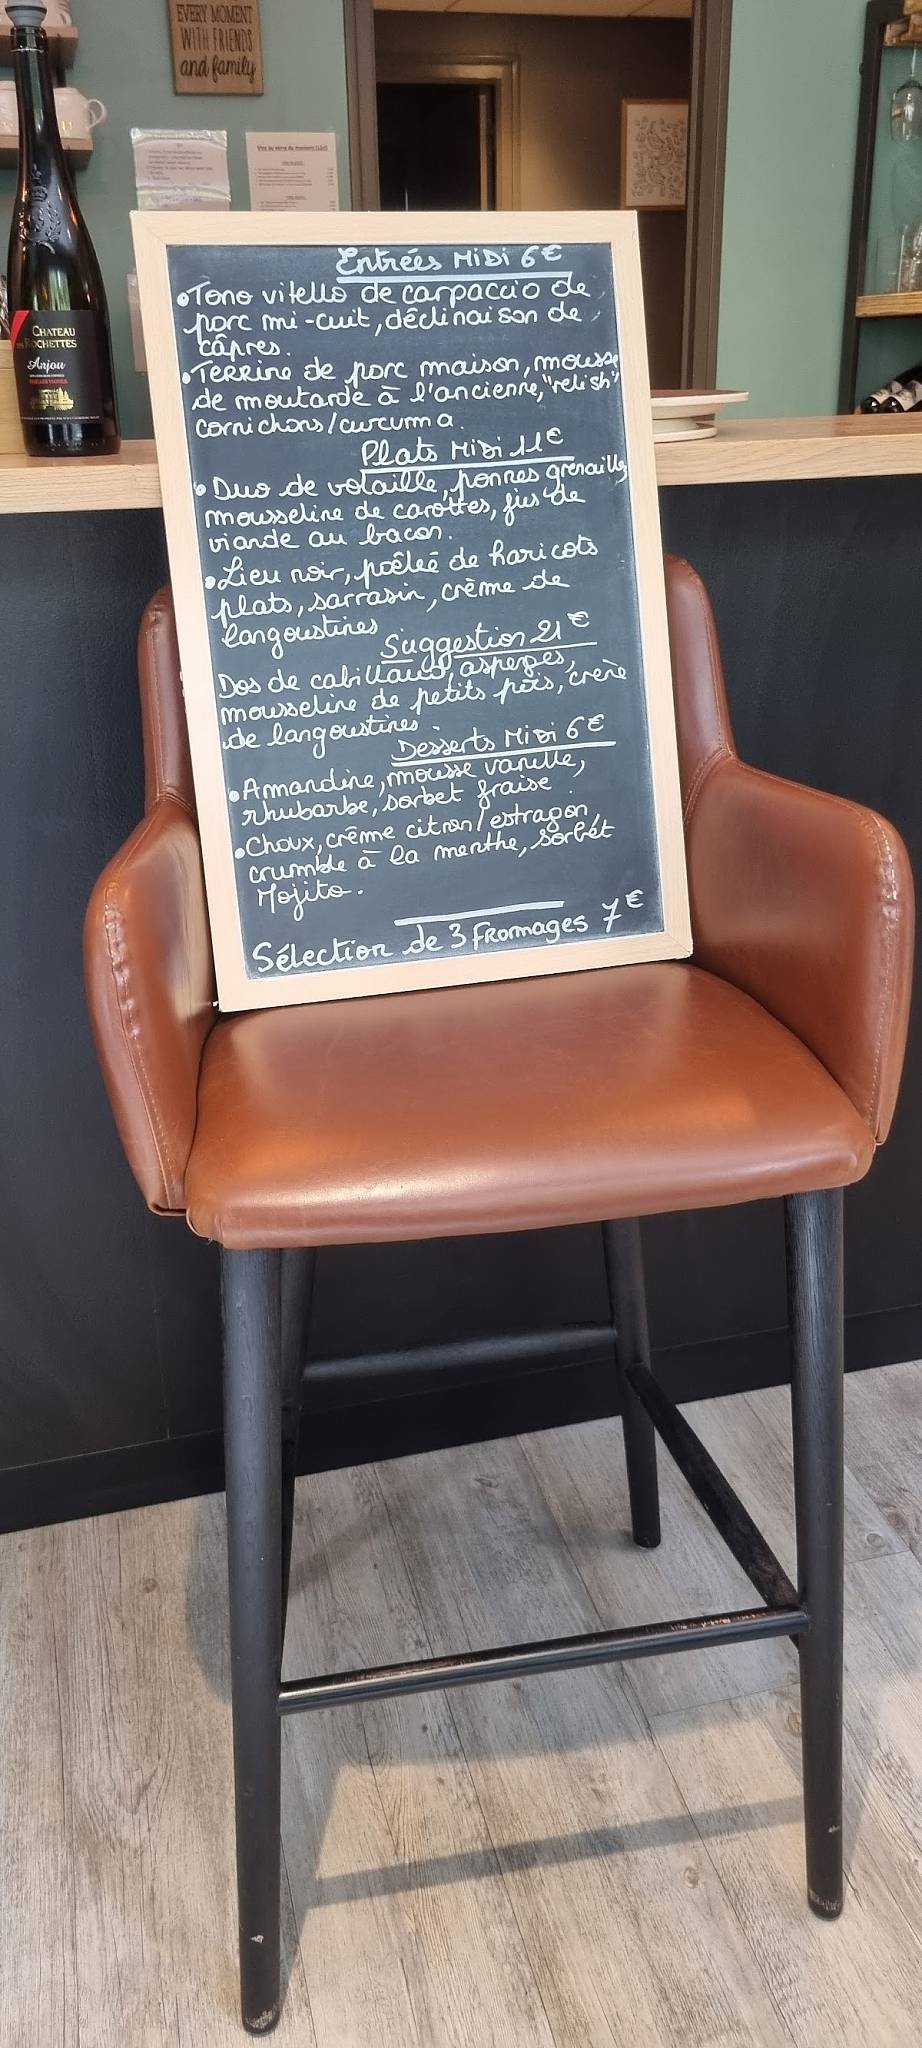 EVERY MOMENT
WITH FRIENDS
and family
CHATEAU
DES ROCHETTES
Anjou
Entrées MiDi 6€
•Tono vitello de carpaccio de
porc mi-cuit, déclinaison de
câpres.
•Terrine de porc maison, mousse
de moutarde à l'ancienne, "relish"
cornichons/curcuma.
Plats MiDi 11€
• Duo de volaille, pommes grenailles,
mousseline de carottes, jus de
viande au bacon.
•Lieu noir, poêlée de haricots
plats, sarrasin, crème de
langoustines
Suggestion 21€
Dos de cabillaud, asperges,
mousseline de petits pois, crème
de langoustines.
Desserts MiDi 6€
•Amandine, mousse vanille,
rhubarbe, sorbet fraise.
•Choux, crème citron/estragon
crumble à la menthe, sorbet
Mojito.
Sélection de 3 Fromages 7€